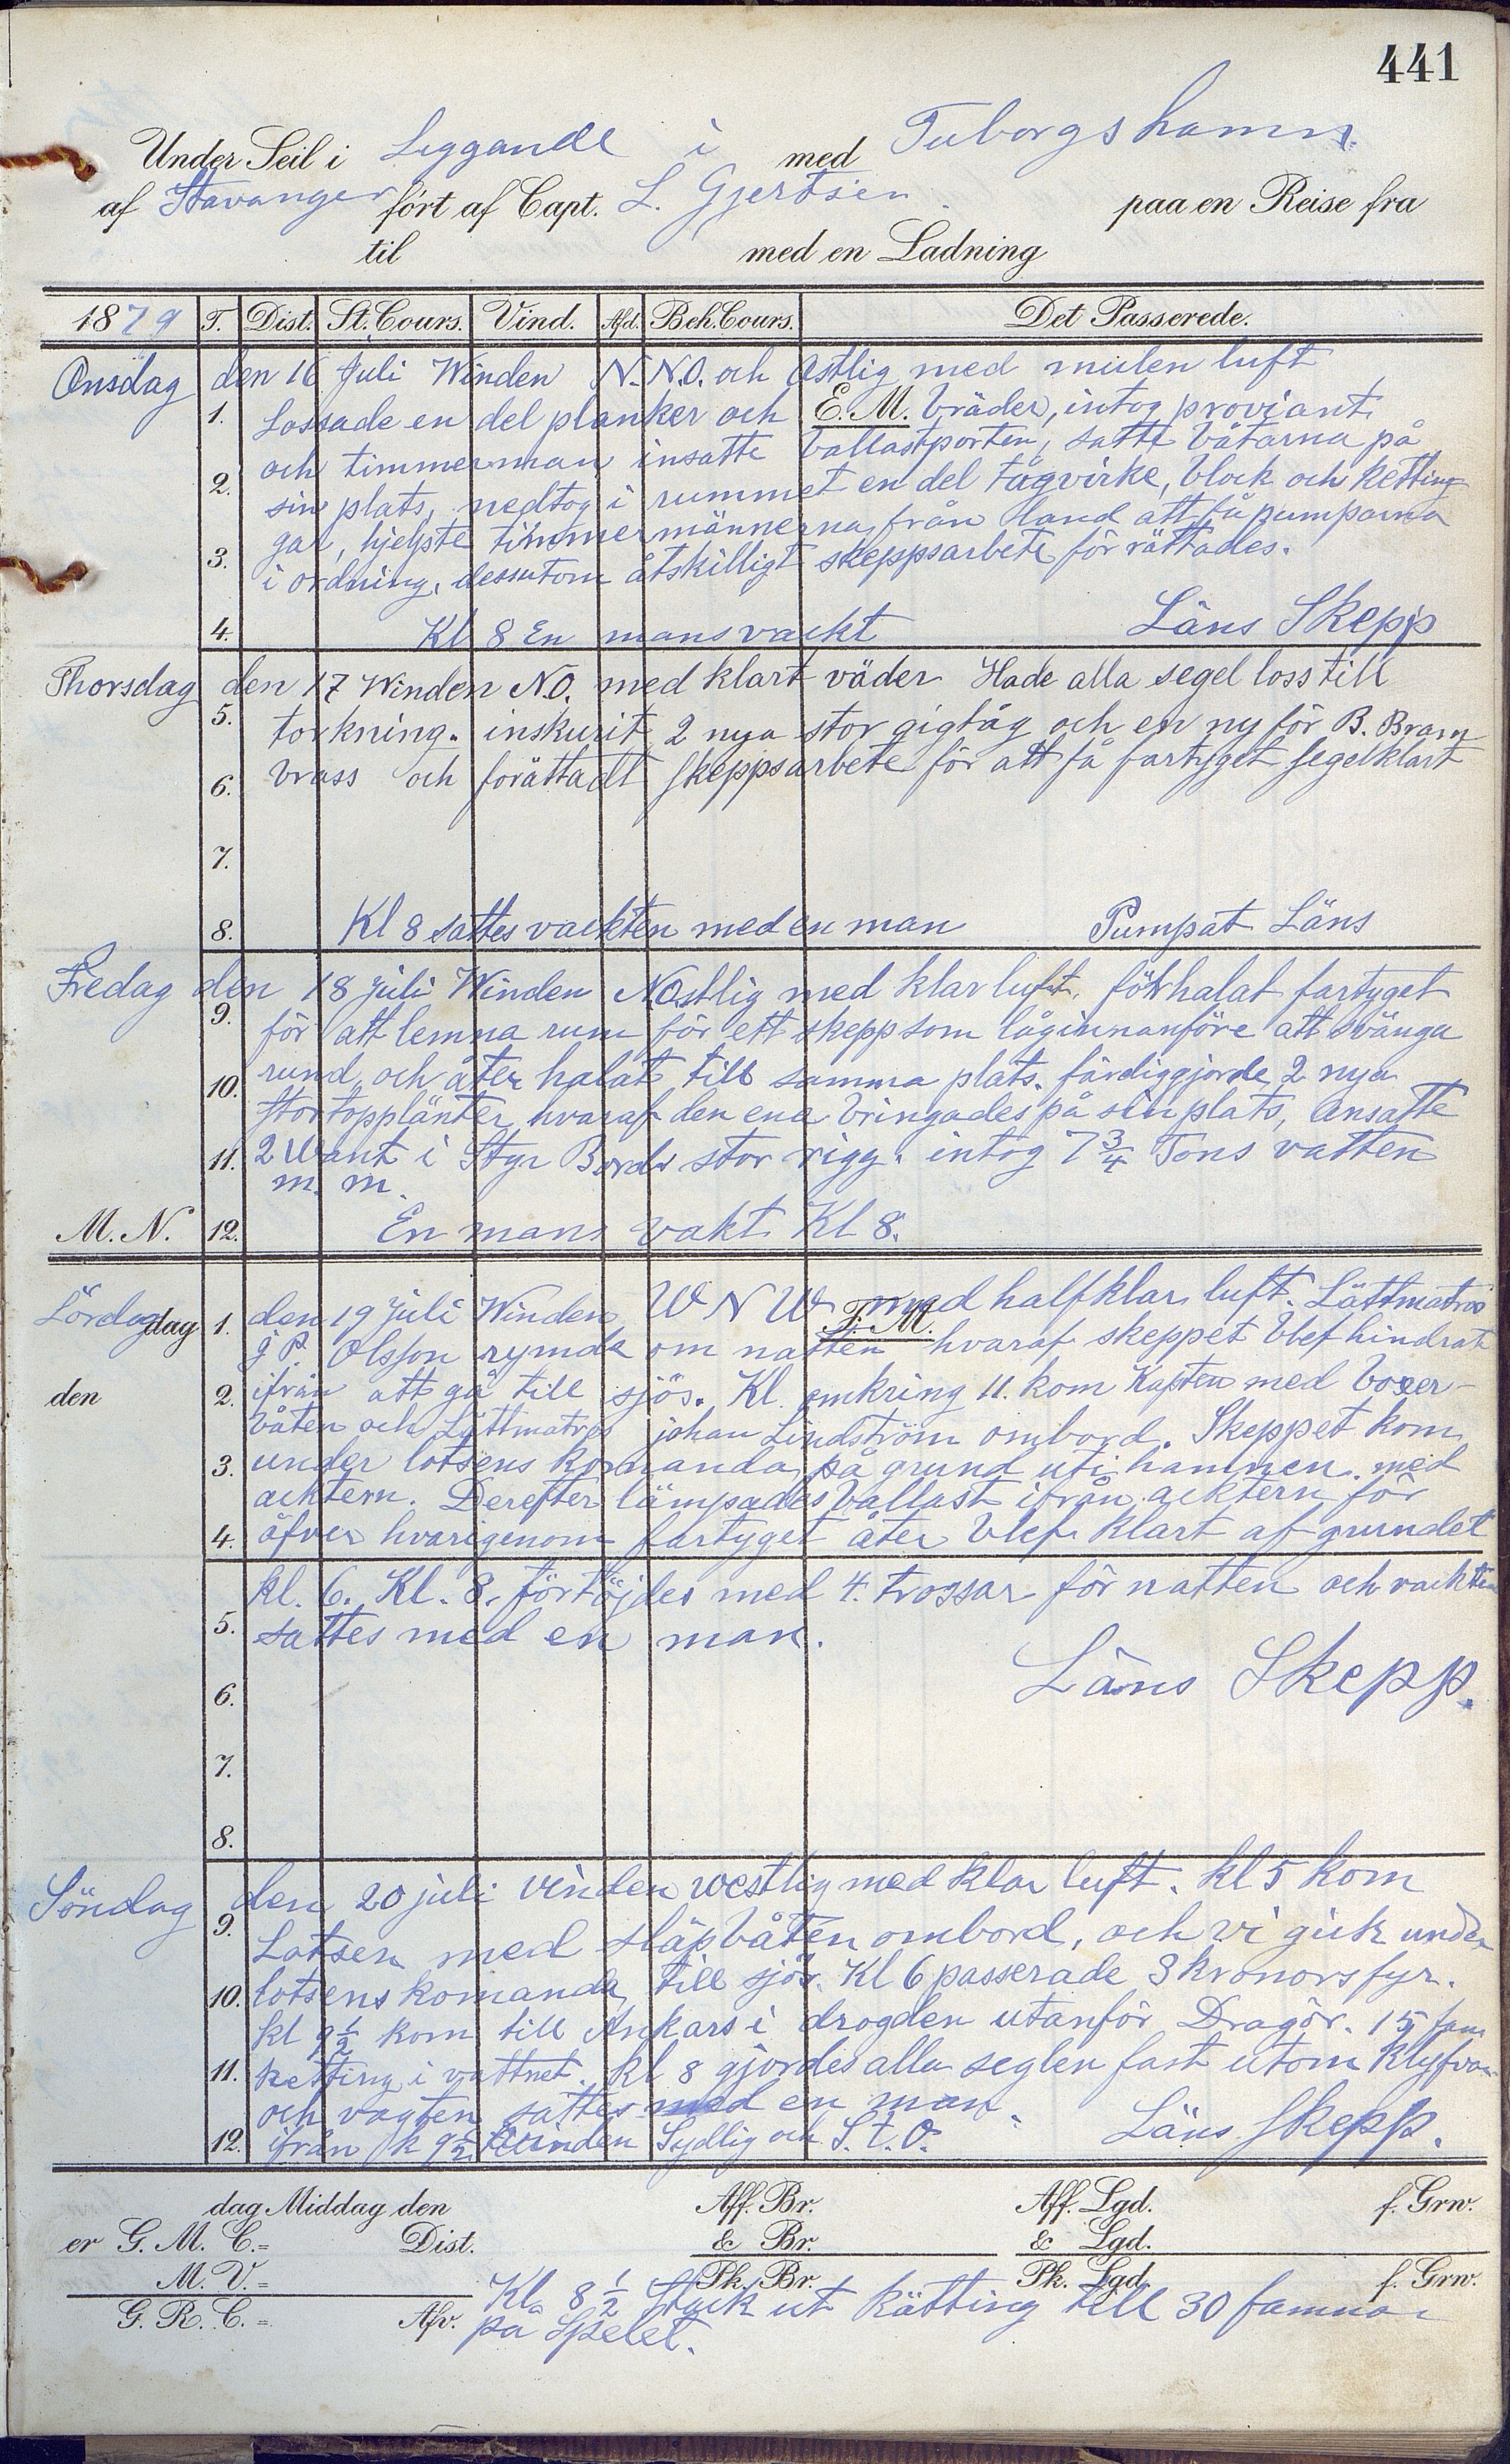 441
Under Seil i Leggande i med Tuborgs hamn.
af Stavanger ført af Capt. L. Gjertsen. paa en Reise fra
til med en Ladning
1879 T. Dist. St. Cours. Vind. Afd. Beh. Cours. Det Passerede.
Onsdag den 16 Juli Winden N.N.O. och Ostlig med mulen luft
1. Lossade en del planker och E. M. bräder, intog proviant
och timmerman insatte ballastporten, satte båtarna på
2. sin plats, nedtog i rummet en del tågvirke, block och ketting
gar, hjelpte timmermännerna från land att få pumparna
3. i ordning, dessutom åtskilligt skeppsarbete förrättades.
4. Kl 8 En mans vackt Läns Skepp
Thorsdag den 17 Winden N.O. med klart väder Hade alla segel loss till
5. torkning. inskurit 2 nya stor gigtåg och en ny för B. Bram
6. brass och forättadt skeppsarbete för att få fartyget segelklart
7.
8. Kl 8 sattes vackten med en man Pumpat Läns
Fredag den 18 Juli Winden NOstlig med klar luft, förhalat fartyget
9. för att lemna rum för ett skepp som låg innanföre att svänga
10. rund, och åter halat till samma plats. färdiggjorde 2 nya
stortopplänter hvaraf den ena bringades på sin plats, Ansatte
11. 2 Want i Styr Bords stor rigg. intog 7 3/4 Tons vatten
m. m.
M. N. 12. En mans vakt Kl 8.
Lördag dag 1. den 19 Juli Winden W N W F. M. med halfklar luft. Lättmatros
J P. Olsson rymde om natten hvaraf skeppet blef hindrat
den 2. ifrån att gå till sjös. Kl. omkring 11. kom Kapten med boxer-
båten och Lättmatros johan Lindström ombord. Skeppet kom
3. under lotsens komando på grund uti hamnen med
acktern. Derefter lämpades ballast ifrån acktern för
4. öfver hvarigenom fartyget åter blef klart af grundet
kl. 6. Kl. 8. förtöjdes med 4. trossar för natten och vackten
5. sattes med en man.
Läns Skepp.
6.
7.
8.
Söndag den 20 juli vinden westlig med klar luft. kl 5 kom
9. Lotsen med släpbåten ombord, och vi gick under
10. lotsens komando till sjös. Kl 6 passerade 3 kronors fyr.
kl 9 1/2 kom till Ankars i drogden utanför Dragör. 15 fam
11. ketting i vattnet. kl 8 gjordes alla seglen fast utom Klyfvaren
och vagten sattes med en man.
12. ifrån k 9 1/2 Winden Sydlig och S. t. O. Läns Skepp.
dag Middag den Aff. Br. Aff. Lgd. f. Grw.
er G. M. C.= Dist. & Br. & Lgd.
M. V.= Pk. Br. Pk. Lgd. f. Grw.
G. R. C.= Afv. Kl. 8 1/2 Stack ut kätting till 30 famnar
på Spelet.